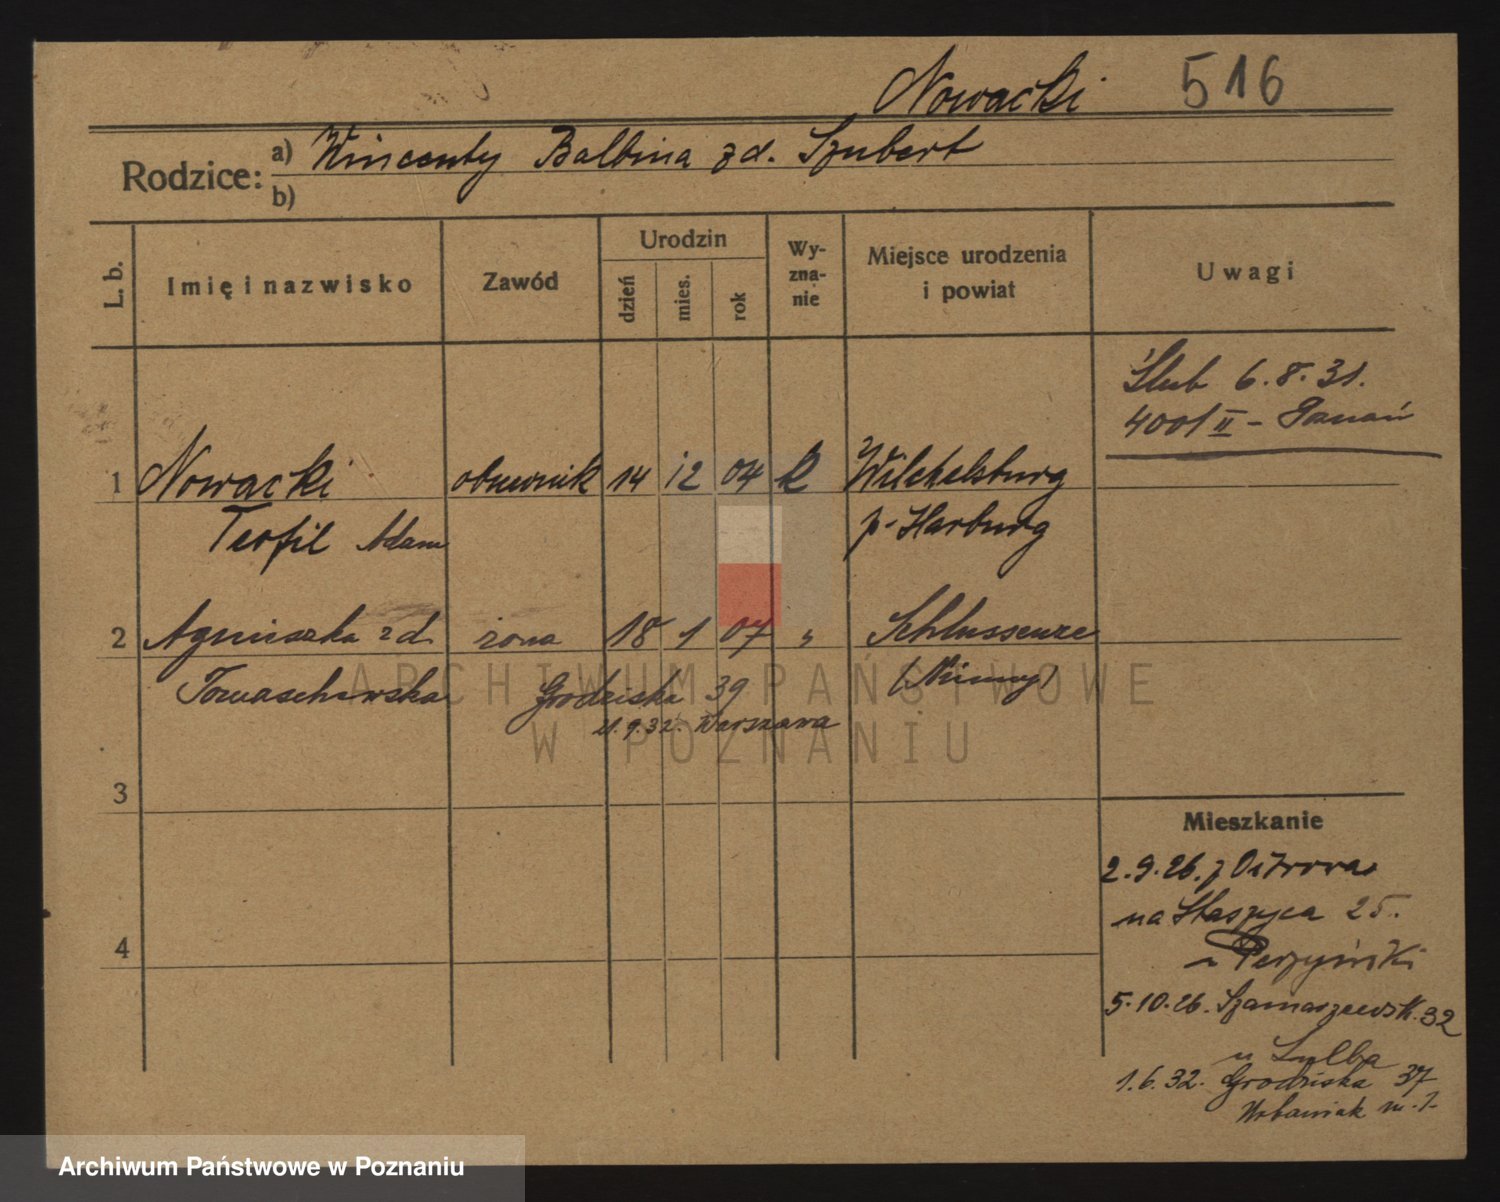 Nowacki 516
Rodzice: a) Wincenty Balbina z d. Szubert
b)
L. b. Imię i nazwisko Zawód Urodzin dzień mies. rok Wy-zna-nie Miejsce urodzenia i powiat Uwagi
Ślub 6.8.31.
4001 II - Poznań
1 Nowacki obuwnik 14 12 04 k Wilhelsburg
Teofil Adam p. Harburg
2 Agnieszka z d. żona 18 1 07 " Schlussenze
Tomaschewska Grodziska 39 (Niemcy)
21.9.32. Warszawa
ARCHIWUM PAŃSTWOWE
W POZNANIU
3
Mieszkanie
2.9.26. z Ostrowa
na Staszyca 25.
4
u Perzyński
5.10.26. Szamarzewsk. 32
u Szulba
1.6.32. Grodziska 37
Urbaniak m. 7
Archiwum Państwowe w Poznaniu